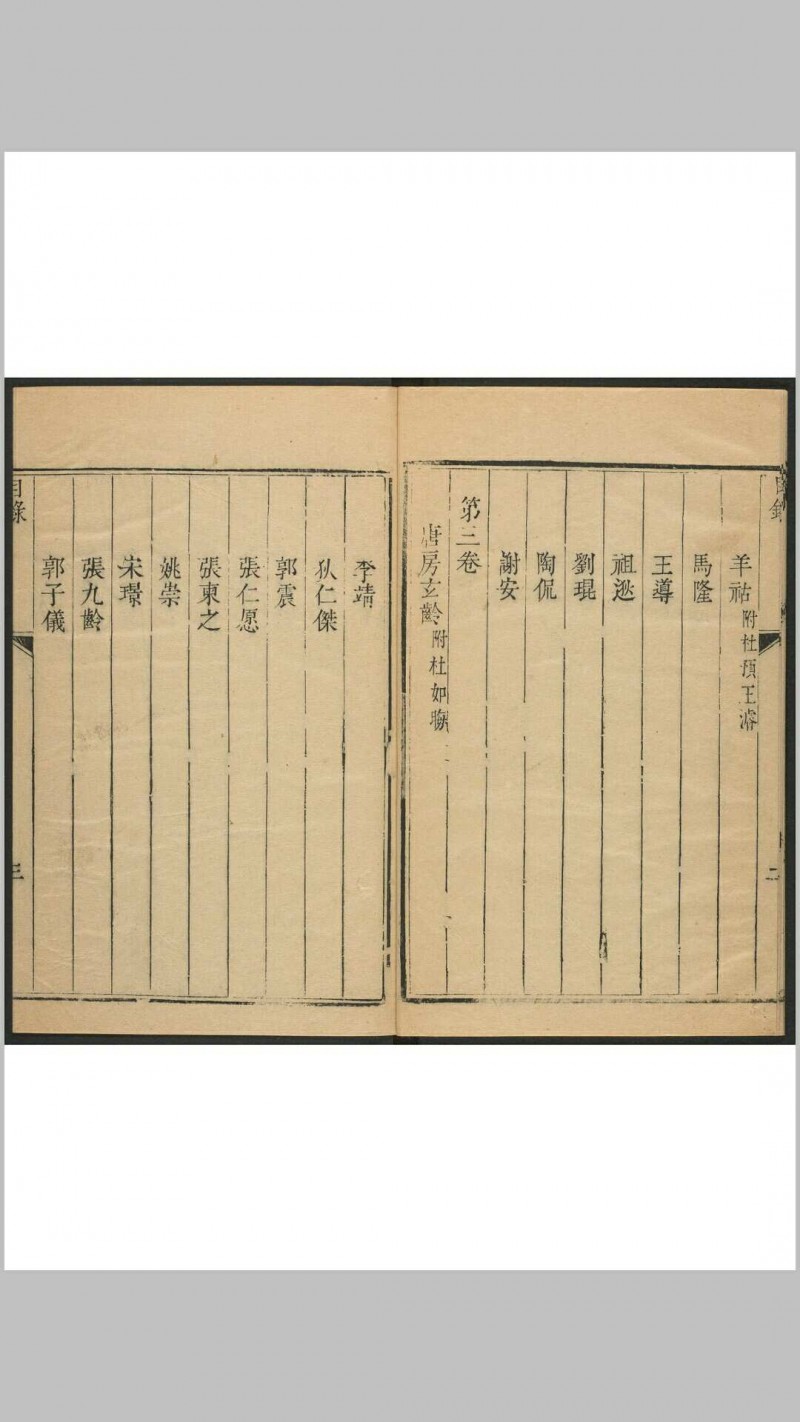 目錄
羊祜附杜預王濬
馬隆
王導
祖逖
劉琨
陶侃
謝安
第三卷
唐房玄齡附杜如晦
二
李靖
狄仁傑
郭震
張仁愿
張柬之
姚崇
宋璟
張九齡
郭子儀
目錄
三